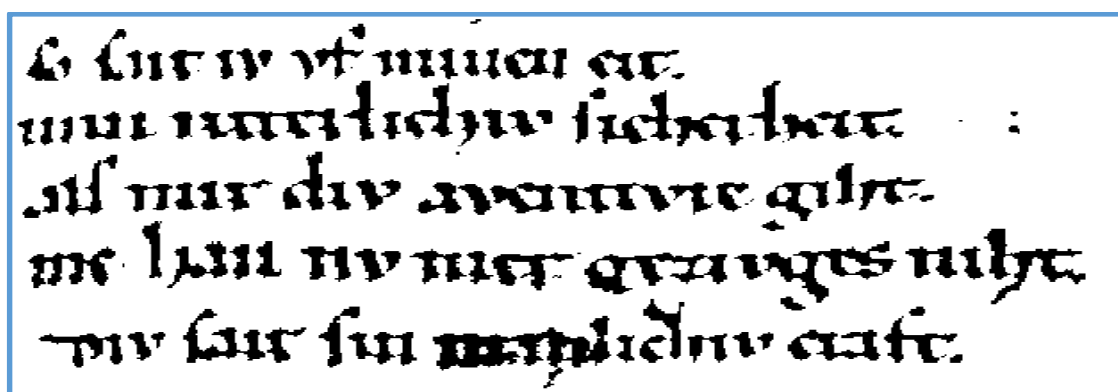 So iv vf minen eit.
min ritterlichiv ſicherheit.
alſ mir div aventivre giht.
ine han nv mer gezivges niht.
Div ſait ſin manlichiv craft.